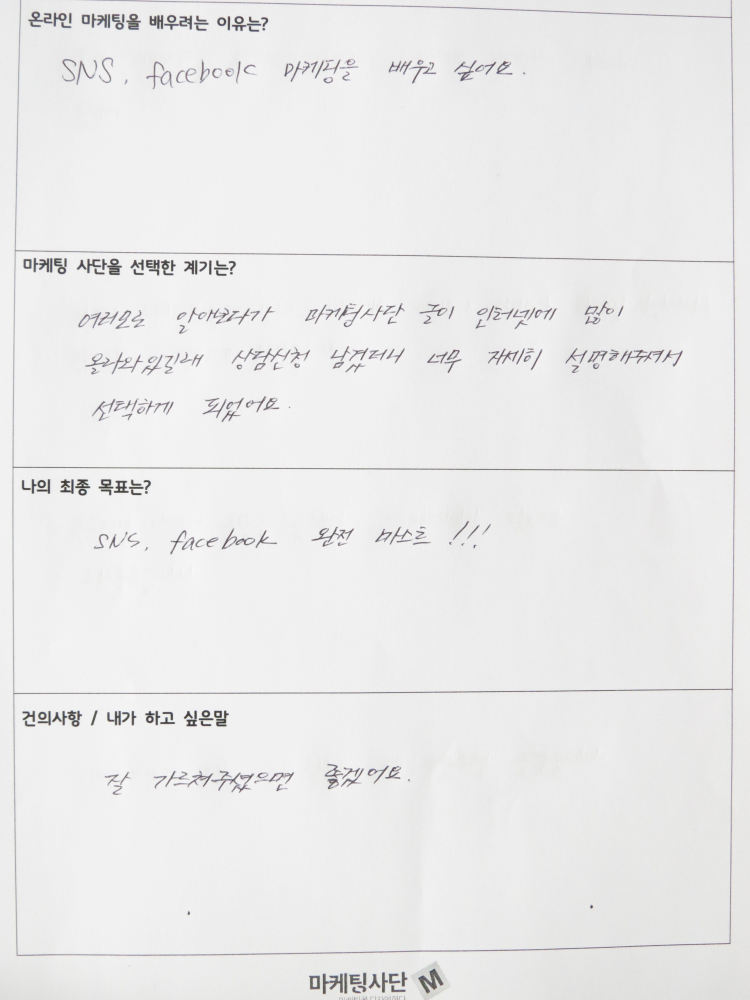 온라인 마케팅을 배우려는 이유는?
SNS, facebook 마케팅을 배우고 싶어요.
마케팅 사단을 선택한 계기는?
여러모로 알아보다가 마케팅사단 글이 인터넷에 많이
올라와있길래 상담신청 남겼더니 너무 자세히 설명해주셔서
선택하게 되었어요.
나의 최종 목표는?
SNS, facebook 완전 마스트 !!!
건의사항 / 내가 하고 싶은말
잘 가르쳐주셨으면 좋겠어요.
마케팅사단 M